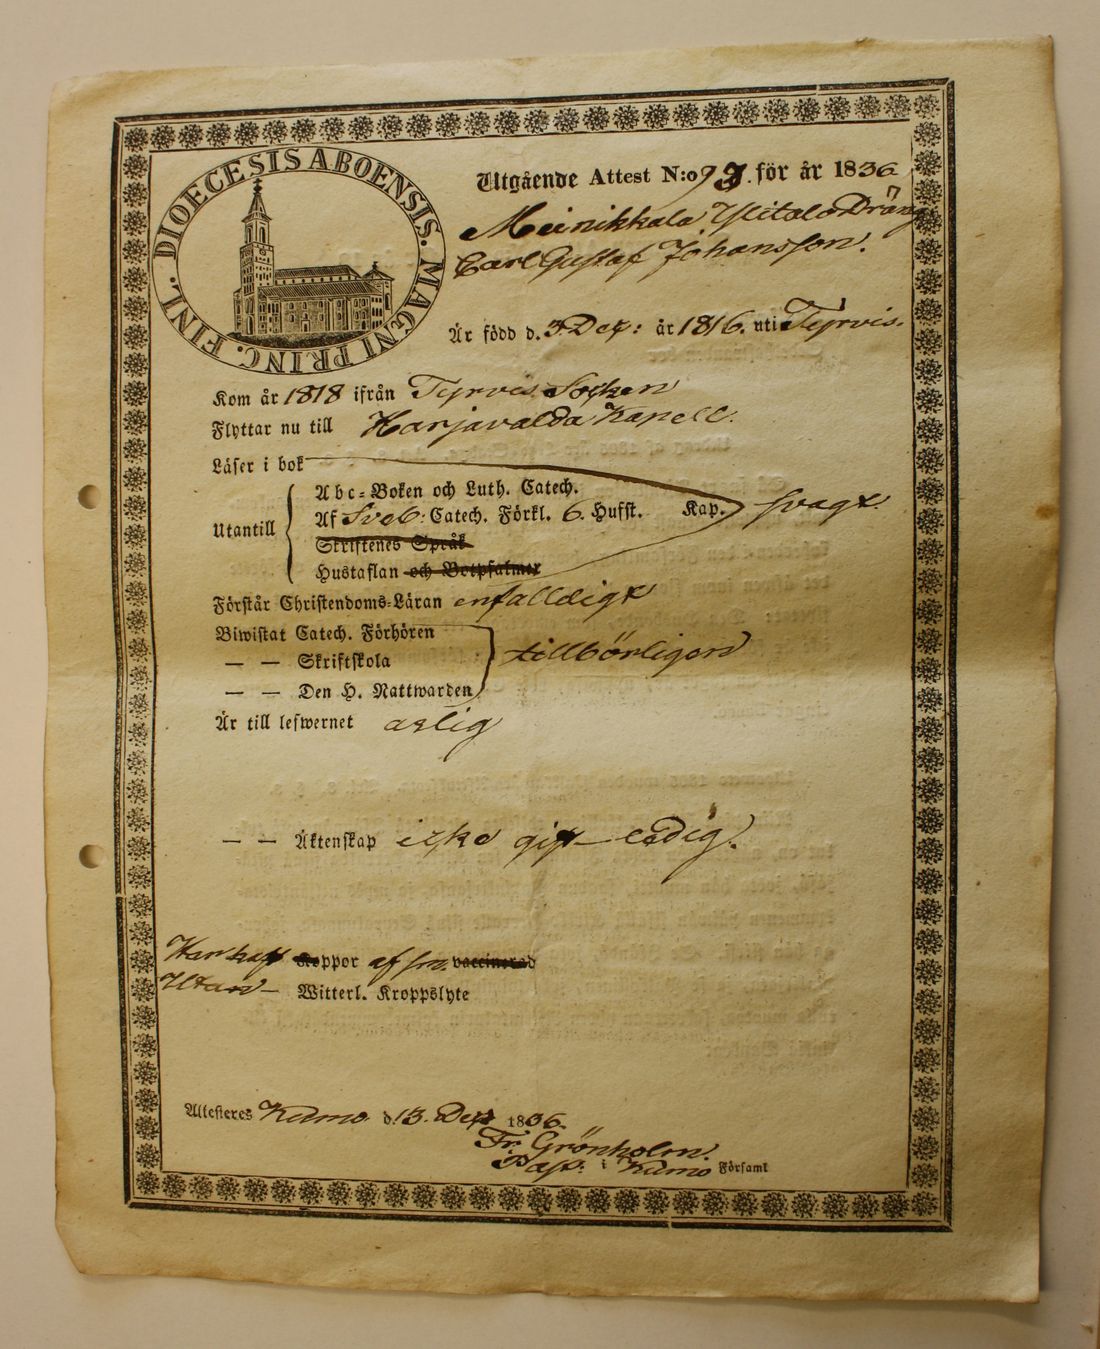 DIOECESIS ABOENSIS. MAGNI PRINC. FINL.
Utgående Attest N:o 93. för år 1836
Meinikkala Ylitalo Dräng
Carl Gustaf Johansson.
Är född d. 3 Dec: år 1816. uti Tyrvis.
Kom år 1818 ifrån Tyrvis Socken
Flyttar nu till Harjavalda Kapell.
Läser i bok
Abc-Boken och Luth. Catech.
Utantill Af Sveb: Catech. Förkl. 6. Hufst. Kap. svagt.
Skriftenes Språk
Hustaflan och Botpsalmer
Förstår Christendoms-Läran enfalldigt
Biwistat Catech. Förhören
— — Skriftskola tillbörligen
— — Den H. Nattwarden
Är till lefwernet ärlig
— — Äktenskap icke gift – ledig.
Har haft Koppor af sm. vaccinerad
Utan – Witterl. Kroppslyte
Attesteres Kumo d. 13. Dec 1836.
Fr. Grönholm.
Past. i Kumo Församl